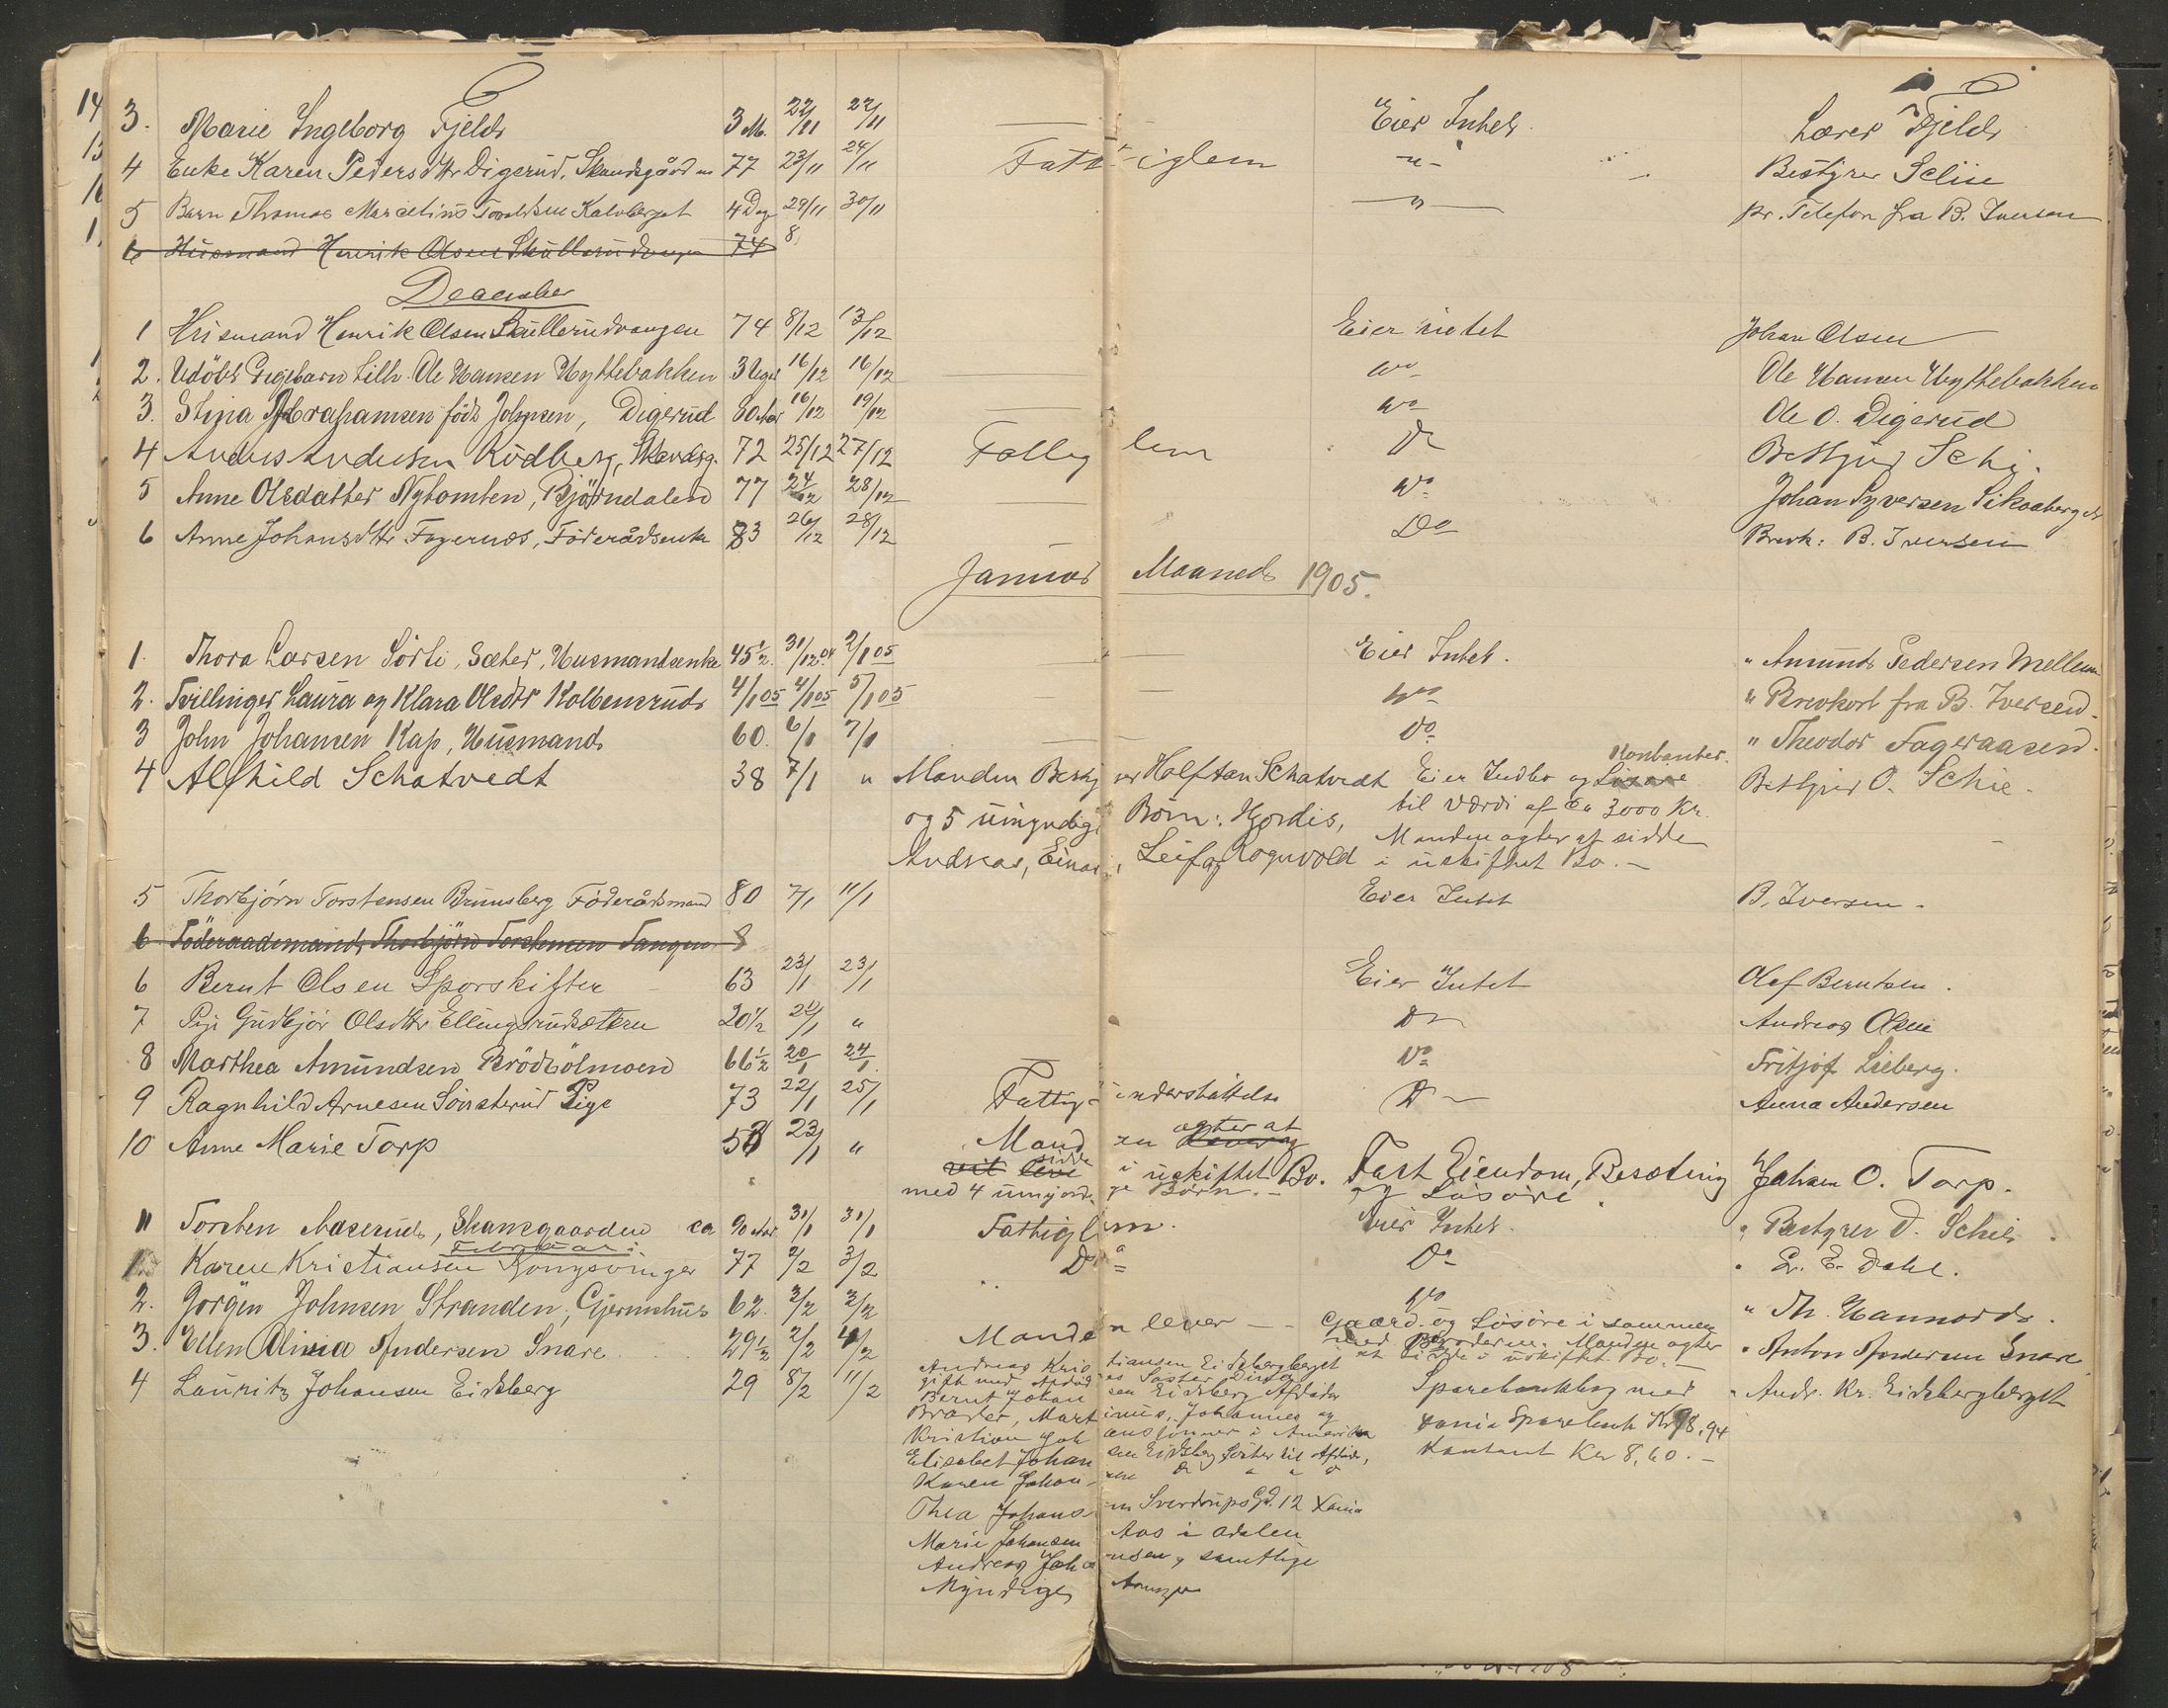 3. Marie Ingeborg Fjeld 3 M. 22/11 27/11 — Eier Intet. Lærer Fjeld
4 Enke Karen Pedersdtr Digerud, Skandsgård 77 23/11 24/11 Fattiglem -"- Bestyrer Schie
5 Barn Thomas Marcelius Torvaldsen Kalvberget 4 Dage 29/11 30/11 —"— pr. Telefon fra B. Iversen
6 Husmand Henrik Olsen Skullerudvangen 74 8
December
1 Husmand Henrik Olsen Skullerudvangen 74 8/12 13/12 Eier intet Johan Olsen
2. Udöbt Pigebarn tilh. Ole Hansen Hyttebakken 3 Uger 16/12 16/12 Do Ole Hansen Hyttebakken
3. Stina Abrahamsen födt Johnsen, Digerud 80 Aar 16/12 19/12 — Do Ole O. Digerud
4 Anders Andersen Rödberg, Skandsg. 72 25/12 27/12 Fattiglem Do Bestyrer Schie.
5 Anne Olsdatter Nytomten, Björndalen 77 24/12 28/12 — Do Johan Syversen
6 Anne Johansdtr Fagernæs, Föderådsenke 83 26/12 28/12 — Do Brevk: B. Iversen
Januar Maaned 1905.
1. Thora Larsen Sörli, Sæter, Husmandsenke 45½ 31/12 04 2/1 05 — Eier Intet. " Amund Pedersen Mellem
2. Tvillinger Laura og Klara Olsdtr Kolbensrud 4/1 05 4/1 05 5/1 05 — Do " Brevkort fra B. Iversen.
3 John Johansen Kap, Husmand 60. 6/1 7/1 — Do " Theodor Fageraasen.
Kontanter.
4 Alfhild Schatvedt 38 7/1 " Manden Bestyrer Halfdan Schatvedt Eier Indbo og Lösøre Bestyrer O. Schie.
og 5 umyndige Börn: Hjordis, til Værdi af Ca 3000 Kr.
Andreas, Einar, Leif og Rognvald Manden agter at sidde
i uskiftet Bo. —
5 Thorbjörn Torstensen Brunsberg Föderådsmand 80 7/1 11/1 Eier Intet B. Iversen.
6 Föderaadsmand Thorbjörn Torstensen Tangen 8
6 Bernt Olsen Sporskifter 63 23/1 23/1 Eier Intet Olaf Berntsen.
7 Pige Gudbjör Olsdtr Ellingsrudsæteren 20½ 22/1 " Do Andreas Olsen
8 Marthea Amundsen Brödbölmoen 66½ 20/1 24/1 — Do Fritjof Lieberg.
9 Ragnhild Arnesen Sönsterud Pige 73 22/1 25/1 Fattigunderstöttelse Do Anna Andersen
10 Anne Marie Torp 53 23/1 " Manden lever og agter at
vil leve sidde i uskiftet Bo. Fast Eiendom, Besætning Johan O. Torp.
med 4 umyndige Börn. — og Lösöre.
11 Torsten Aaserud, Skansgaarden ca 90 Aar 31/1 31/1 Fattiglem. Eier Intet. " Bestyrer O. Schie.
Februar:
1. Karen Kristiansen Kongsvinger 77 2/2 3/2 Do Do " E. Dahl.
2. Jörgen Johnsen Stranden, Gjermshus 62. 2/2 3/2 Do " Th. Hannord.
3. Ellen Olivia Andersen Snare 29½ 2/2 4/2 Manden lever — Gaard og Lösöre i sammen
med Broderen. Manden agter
at sidde i uskiftet Bo. — " Anton Andersen Snare
4 Lauritz Johansen Eidsberg 29 8/2 11/2 Andreas Kristiansen Eidsbergberget Sparebankbog med " Andr. Kr. Eidsbergberget
gift med Afdödes Söster
Bernt Johansen Eidsberg Afdödes Xania Sparebank Kr 98,94
Broder, Martinus, Johannes og Kontant Kr 8,60. —
Kristian Johansönner i Amerika
Elisabet Johansen Eidsberg Söster til Afdöde,
Karen Johansen Do " " "
Thea Johansen Sverdrups Gd. 12 Xania
Marie Johansen Aas i Odalen
Andreas Johansen, samtlige
Myndige, Arvinger